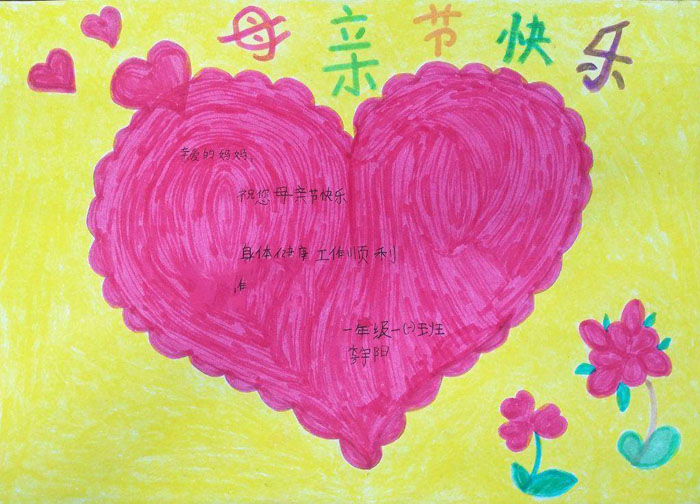 母亲节快乐
亲爱的妈妈:
祝您母亲节快乐
身体健康 工作顺利
作
一年级一(一)班
李宇阳